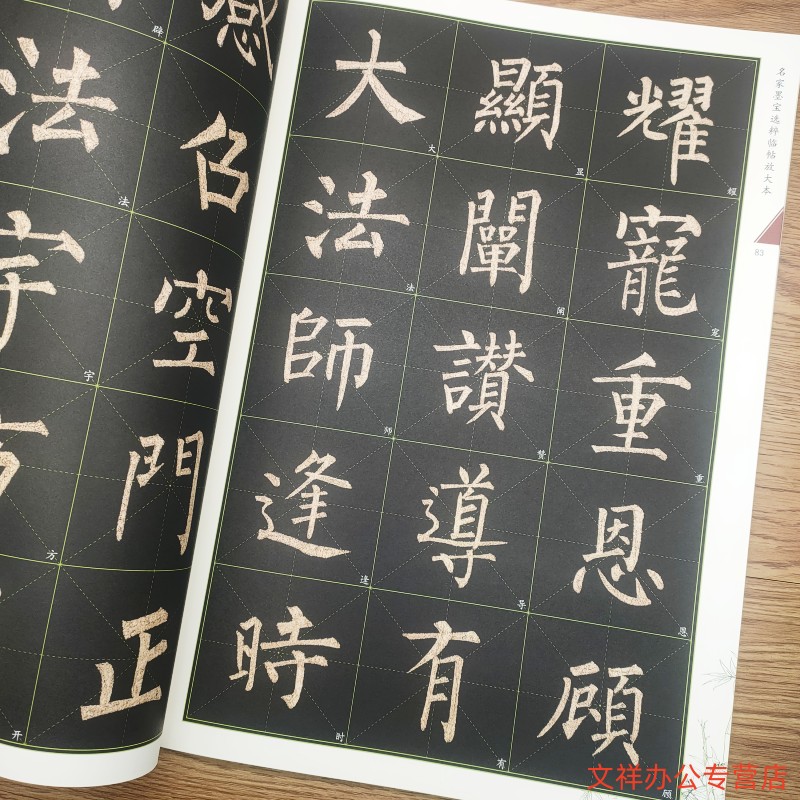 名家墨宝选粹临帖放大本
83
耀寵重恩顧
耀宠重恩顾
顯闡讚導有
显阐赞导有
大法師逢時
大法师逢时
感召空門正
法宇方
辟法宇方开
文祥办公专营店